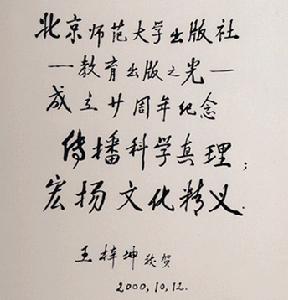 北京师范大学出版社
—教育出版之光—
成立廿周年纪念
传播科学真理;
宏扬文化精义.
王梓坤敬贺
2000,10,12.